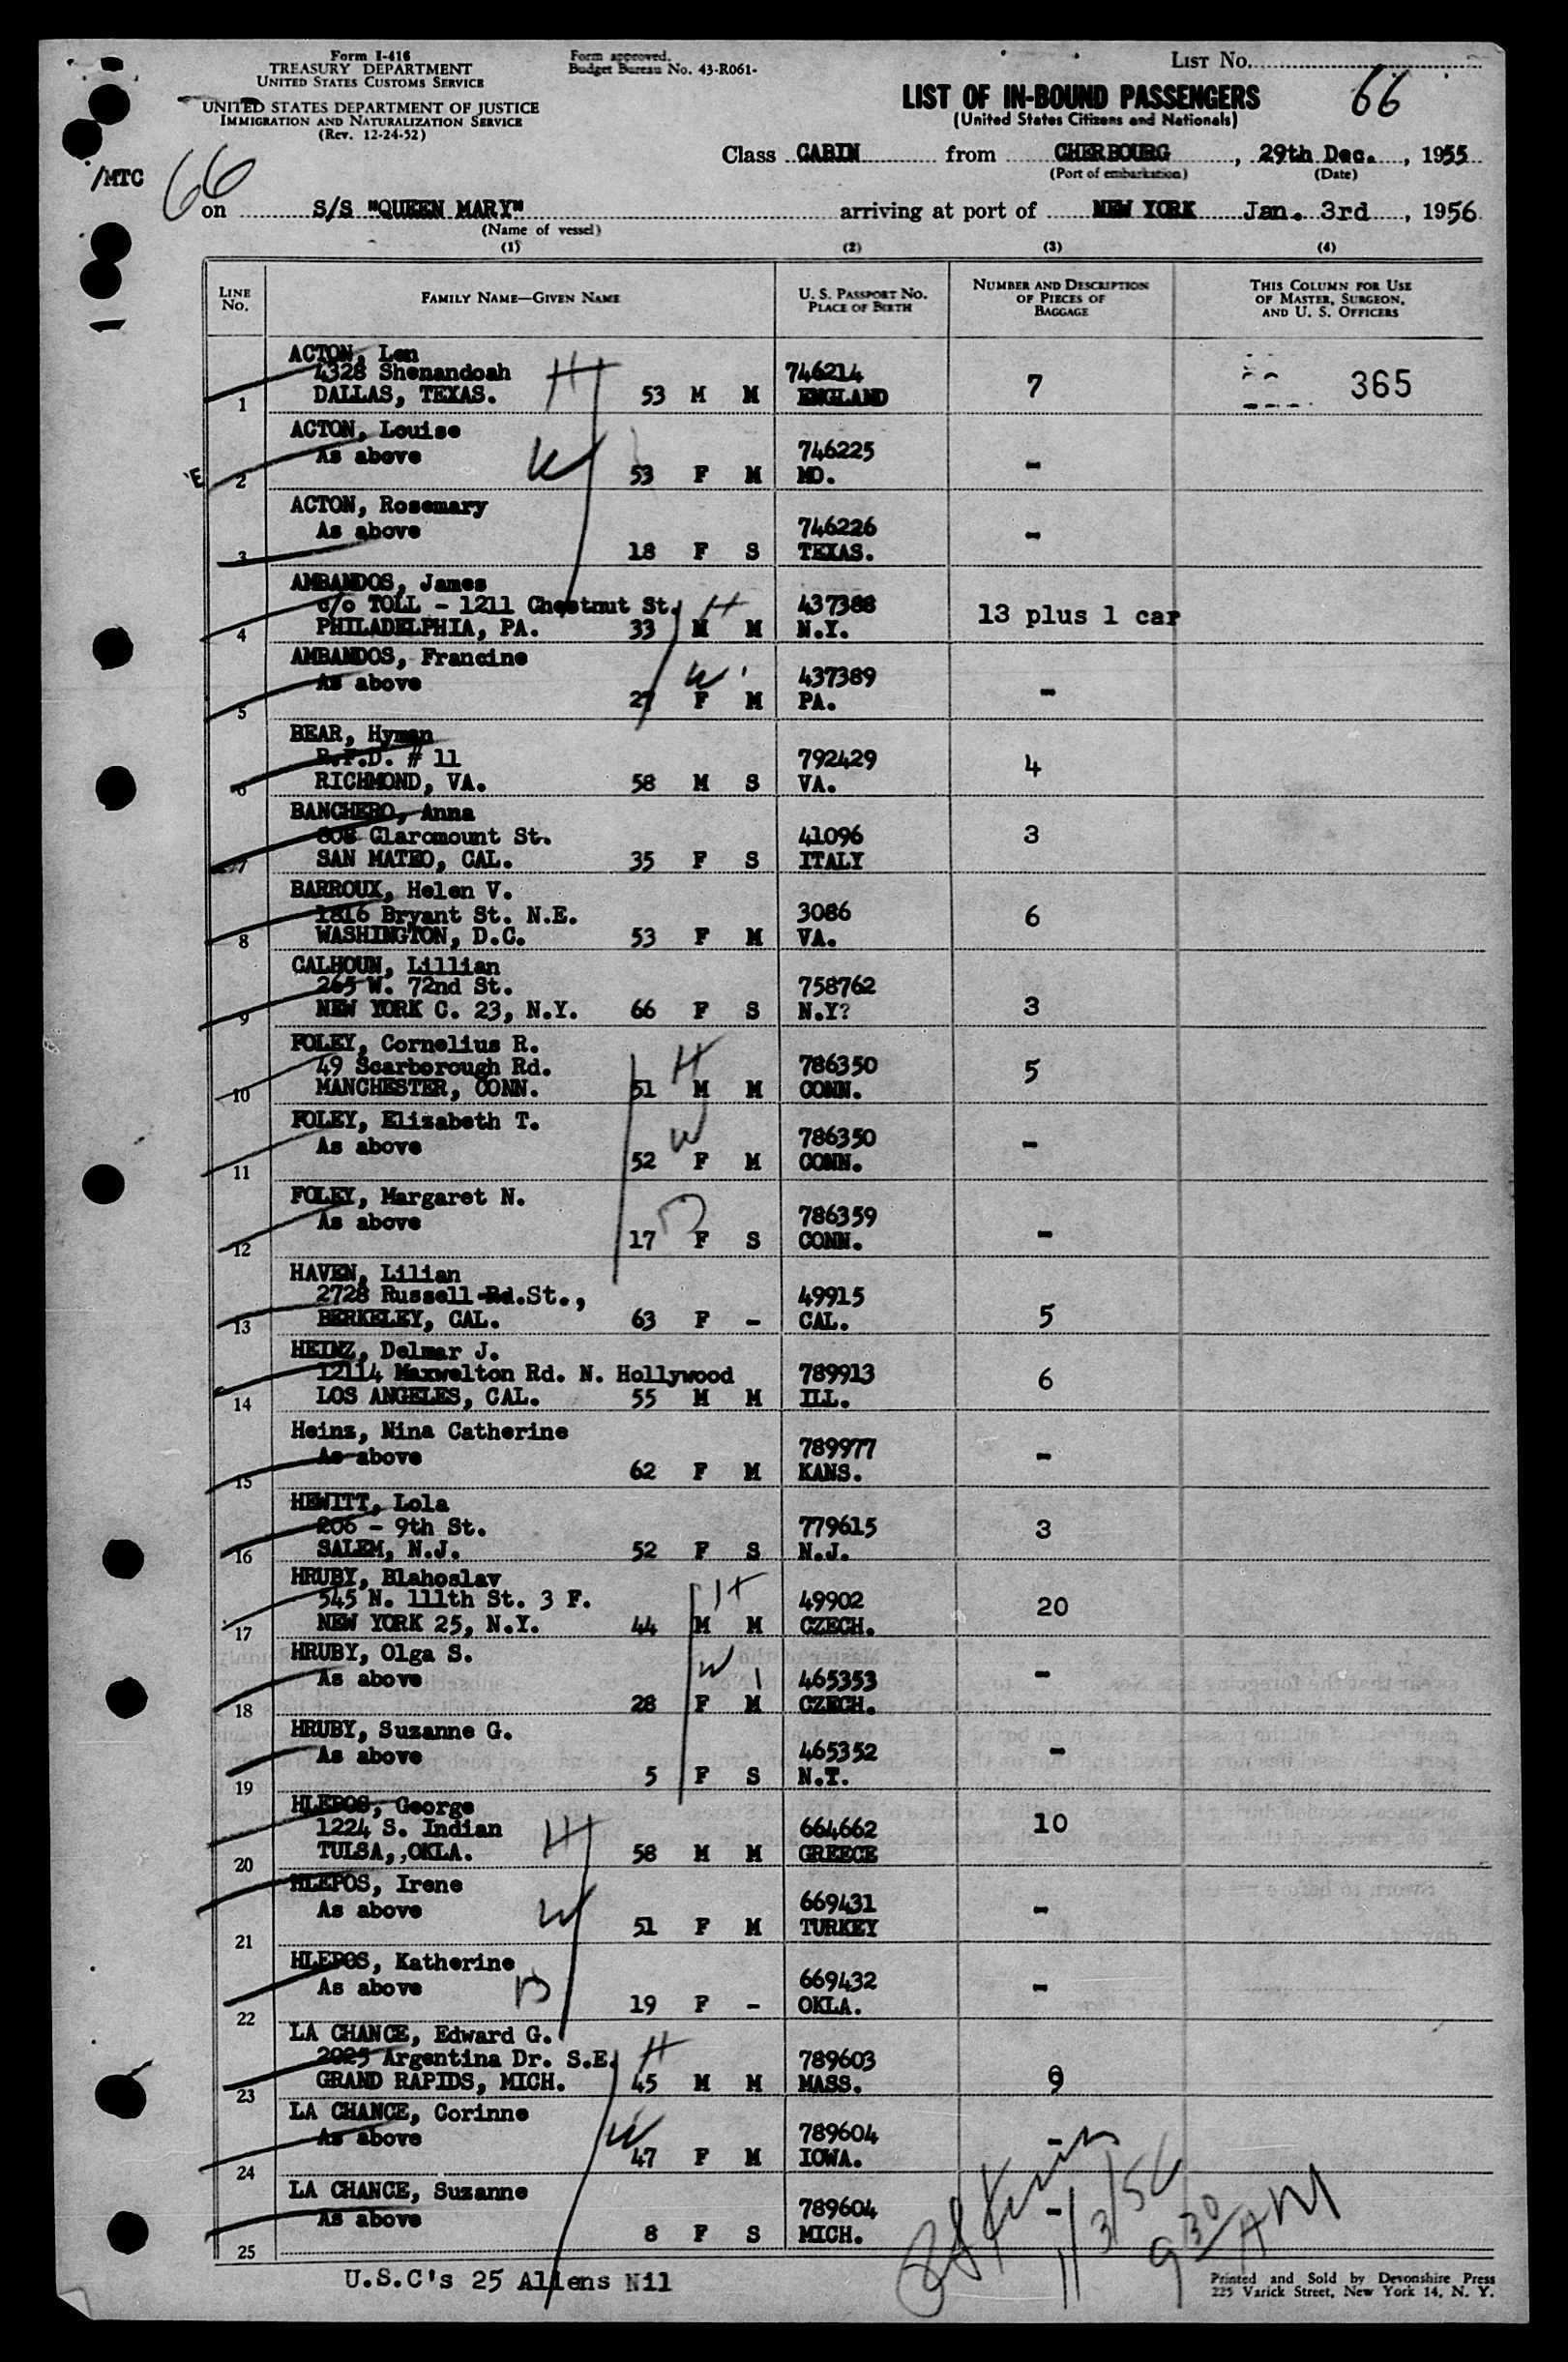 Form I-416
TREASURY DEPARTMENT
UNITED STATES CUSTOMS SERVICE
UNITED STATES DEPARTMENT OF JUSTICE
IMMIGRATION AND NATURALIZATION SERVICE
(Rev. 12-24-52)
Form approved.
Budget Bureau No. 43-R061-
LIST NO.
66
LIST OF IN-BOUND PASSENGERS
(United States Citizens and Nationals)
/MTC
66
Class CABIN from CHERBOURG, 29th Dec., 1955
(Port of embarkation) (Date)
on S/S "QUEEN MARY" arriving at port of NEW YORK Jan. 3rd, 1956
(Name of vessel)
(1) (2) (3) (4)
LINE NO. FAMILY NAME—GIVEN NAME U. S. PASSPORT NO. PLACE OF BIRTH NUMBER AND DESCRIPTION OF PIECES OF BAGGAGE THIS COLUMN FOR USE OF MASTER, SURGEON, AND U. S. OFFICERS
ACTON, Len
4328 Shenandoah H 746214 7 365
1 DALLAS, TEXAS. 53 M M ENGLAND
ACTON, Louise
As above W 746225 -
'E 2 53 F M MO.
ACTON, Rosemary
As above 746226 -
3 18 F S TEXAS.
AMBANDOS, James
c/o TOLL - 1211 Chestnut St. H 437388 13 plus 1 car
4 PHILADELPHIA, PA. 33 M M N.Y.
AMBANDOS, Francine
As above W 437389 -
5 27 F M PA.
BEAR, Hyman
R.F.D. # 11 792429 4
6 RICHMOND, VA. 58 M S VA.
BANCHERO, Anna
808 Claromount St. 41096 3
7 SAN MATEO, CAL. 35 F S ITALY
BARROUX, Helen V.
1816 Bryant St. N.E. 3086 6
8 WASHINGTON, D.C. 53 F M VA.
CALHOUN, Lillian
265 W. 72nd St. 758762
9 NEW YORK C. 23, N.Y. 66 F S N.Y? 3
FOLEY, Cornelius R.
49 Scarborough Rd. H 786350 5
10 MANCHESTER, CONN. 51 M M CONN.
FOLEY, Elizabeth T.
As above W 786350 -
11 52 F M CONN.
FOLEY, Margaret N.
As above D 786359 -
12 17 F S CONN.
HAVEN, Lilian
2728 Russell Rd.St., 49915
13 BERKELEY, CAL. 63 F - CAL. 5
HEINZ, Delmar J.
12114 Maxwelton Rd. N. Hollywood 789913 6
14 LOS ANGELES, CAL. 55 M M ILL.
Heinz, Nina Catherine
As above 789977 -
15 62 F M KANS.
HEWITT, Lola
206 - 9th St. 779615 3
16 SALEM, N.J. 52 F S N.J.
HRUBY, Blahoslav
545 N. 111th St. 3 F. H 49902 20
17 NEW YORK 25, N.Y. 44 M M CZECH.
HRUBY, Olga S.
As above W 465353 -
18 28 F M CZECH.
HRUBY, Suzanne G.
As above 465352 -
19 5 F S N.Y.
HLEPOS, George
1224 S. Indian H 664662 10
20 TULSA,,OKLA. 58 M M GREECE
HLEPOS, Irene
As above W 669431 -
21 51 F M TURKEY
HLEPOS, Katherine
As above D 669432 -
22 19 F - OKLA.
LA CHANCE, Edward G.
2025 Argentina Dr. S.E. H 789603
23 GRAND RAPIDS, MICH. 45 M M MASS. 9
LA CHANCE, Corinne
As above W 789604 -
24 47 F M IOWA.
LA CHANCE, Suzanne
As above 789604 -
25 8 F S MICH.
1/3/56
9 30 AM
U.S.C's 25 Aliens Nil
Printed and Sold by Devonshire Press
225 Varick Street, New York 14, N. Y.